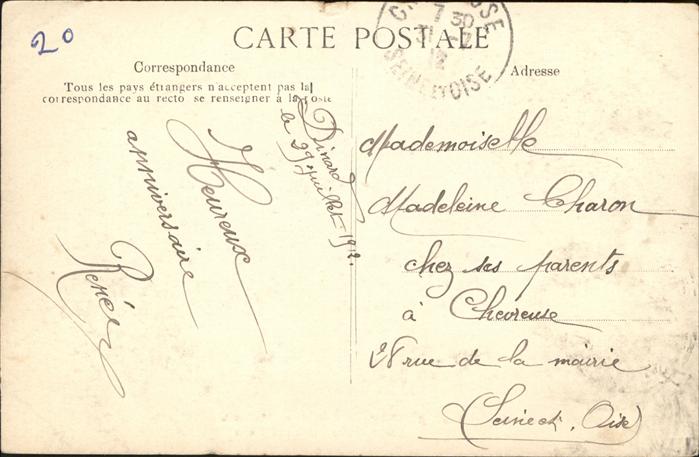 2º
CARTE POSTALE
Correspondance
Tous les pays étrangers n'acceptent pas la
correspondance au recto se renseigner à la Poste
Dinard
le 29 juillet 1912.
Heureux
anniversaire
Renée
7 30
31-7
12
SEINE-ET-OISE
Adresse
Mademoiselle
Madeleine Charon
chez ses parents
à Chevreuse
28 rue de la mairie
(Seine et Oise)